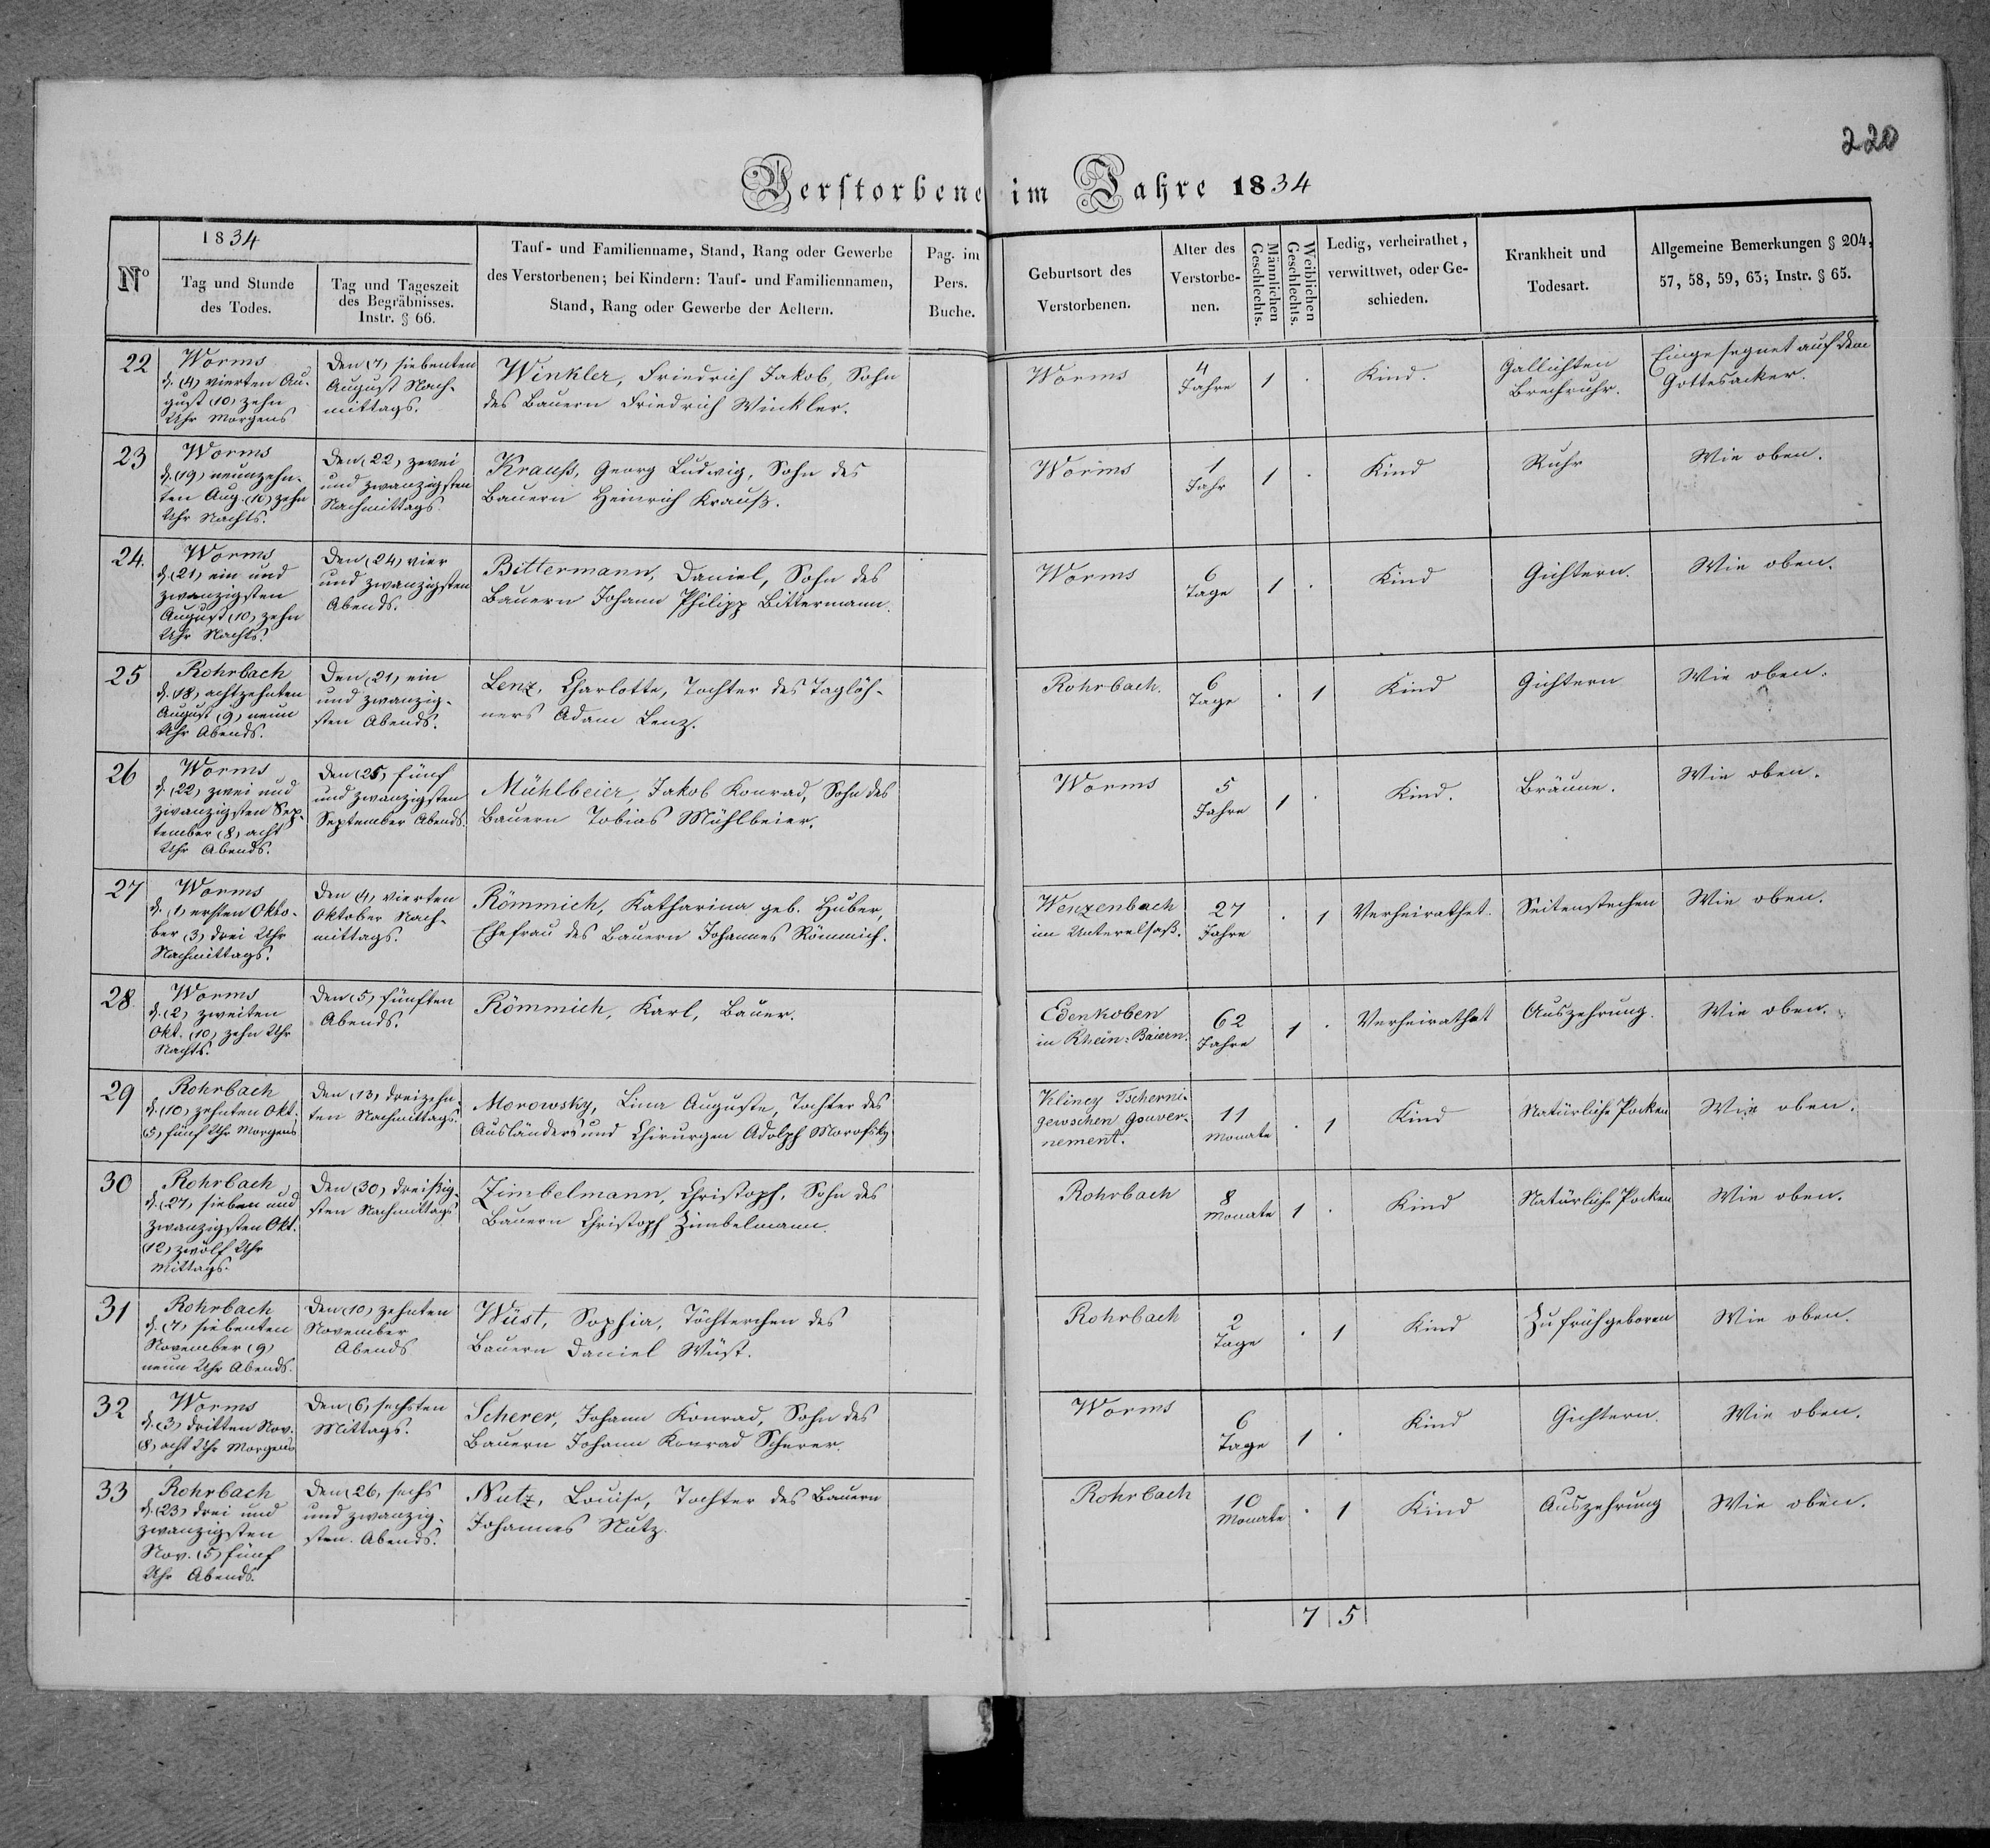 220
Verstorbene im Jahre 1834
No
1834
Tag und Stunde
des Todes.
Tag und Tageszeit
des Begräbnisses.
Instr. § 66.
Tauf- und Familienname, Stand, Rang oder Gewerbe
des Verstorbenen; bei Kindern: Tauf- und Familiennamen,
Stand, Rang oder Gewerbe der Aeltern.
Pag. im
Pers.
Buche.
Geburtsort des
Verstorbenen.
Alter des
Verstorbe-
nen.
Männlichen
Geschlechts.
Weiblichen
Geschlechts.
Ledig, verheirathet,
verwittwet, oder Ge-
schieden.
Krankheit und
Todesart.
Allgemeine Bemerkungen § 204,
57, 58, 59, 63; Instr. § 65.
22
Worms
d. (4) vierten Au-
gust (10) zehn
Uhr Morgens
Den (7) siebenten
August Nach-
mittags.
Winkler, Friedrich Jakob, Sohn
des Bauern Friedrich Winkler.
Worms
4
Jahre
1
.
Kind.
Gallichten
Brechruhr.
Eingesegnet auf dem
Gottesacker.
23
Worms
d. (19) neunzehn-
ten Aug. (10) zehn
Uhr Nachts.
Den (22) zwei
und zwanzigsten
Nachmittags.
Krauß, Georg Ludwig, Sohn des
Bauern Heinrich Krauß.
Worms
1
Jahr
1
.
Kind
Ruhr
Wie oben.
24.
Worms
d. (21) ein und
zwanzigsten
August (10) zehn
Uhr Nachts.
Den (24) vier
und zwanzigsten
Abends.
Bittermann, Daniel, Sohn des
Bauern Johann Philipp Bittermann.
Worms
6
Tage
1
.
Kind
Gichtern.
Wie oben.
25
Rohrbach
d. (18) achtzehnten
August (9) neun
Uhr Abends.
Den (21) ein
und zwanzig-
sten Abends.
Lenz, Charlotte, Tochter des Taglöh-
ners Adam Lenz.
Rohrbach.
6
Tage
.
1
Kind
Gichtern
Wie oben.
26
Worms
d. (22) zwei und
zwanzigsten Sep-
tember (8) acht
Uhr Abends.
Den (25) fünf
und zwanzigsten
September Abends.
Mühlbeier, Jakob Konrad, Sohn des
Bauern Tobias Mühlbeier.
Worms
5
Jahre
1
.
Kind.
Bräune.
Wie oben.
27
Worms
d. (1) ersten Okto-
ber (3) drei Uhr
Nachmittags.
Den (4) vierten
Oktober Nach-
mittags.
Römmich, Katharina geb. Huber,
Ehefrau des Bauern Johannes Römmich.
Wenzenbach
im Unterelsaß.
27
Jahre
.
1
Verheirathet.
Seitenstechen
Wie oben.
28
Worms
d. (2) zweiten
Okt. (10) zehn Uhr
Nachts.
Den (5) fünften
Abends.
Römmich, Karl, Bauer.
Edenkoben
in Rhein-Baiern.
62
Jahre
1
.
Verheirathet
Auszehrung.
Wie oben.
29
Rohrbach
d. (10) zehnten Okt.
(5) fünf Uhr Morgens
Den (13) dreizehn-
ten Nachmittags.
Morowsky, Lina Auguste, Tochter des
Ausländers und Chirurgen Adolph Morofsky.
Klincy Tscherni-
gewschen Gouver-
nement.
11
Monate
.
1
Kind
Natürliche Pocken
Wie oben.
30
Rohrbach
d. (27) sieben und
zwanzigsten Okt.
(12) zwölf Uhr
Mittags.
Den (30) dreißig-
sten Nachmittags
Zimbelmann, Christoph, Sohn des
Bauern Christoph Zimbelmann.
Rohrbach
8
Monate
1
.
Kind
Natürliche Pocken
Wie oben.
31
Rohrbach
d. (7) siebenten
November (9)
neun Uhr Abends.
Den (10) zehnten
November
Abends
Wüst, Sophia, Töchterchen des
Bauern Daniel Wüst.
Rohrbach
2
Tage
.
1
Kind
Zu früh geboren
Wie oben.
32
Worms
d. (3) dritten Nov.
(8) acht Uhr Morgens
Den (6) sechsten
Mittags.
Scherer, Johann Konrad, Sohn des
Bauern Johann Konrad Scherer.
Worms
6
Tage
1
.
Kind
Gichtern.
Wie oben.
33
Rohrbach
d. (23) drei und
zwanzigsten
Nov. (5) fünf
Uhr Abends.
Den (26) sechs
und zwanzig-
sten Abends.
Nutz, Louise, Tochter des Bauern
Johannes Nutz.
Rohrbach
10
Monate
.
1
Kind
Auszehrung
Wie oben.
7
5